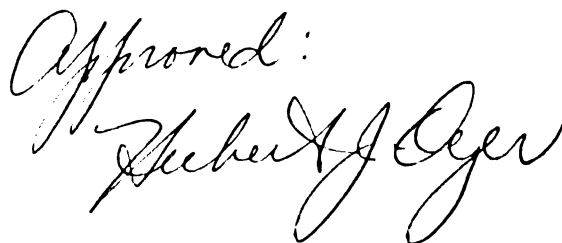 Approved:
Hubert J Oyer